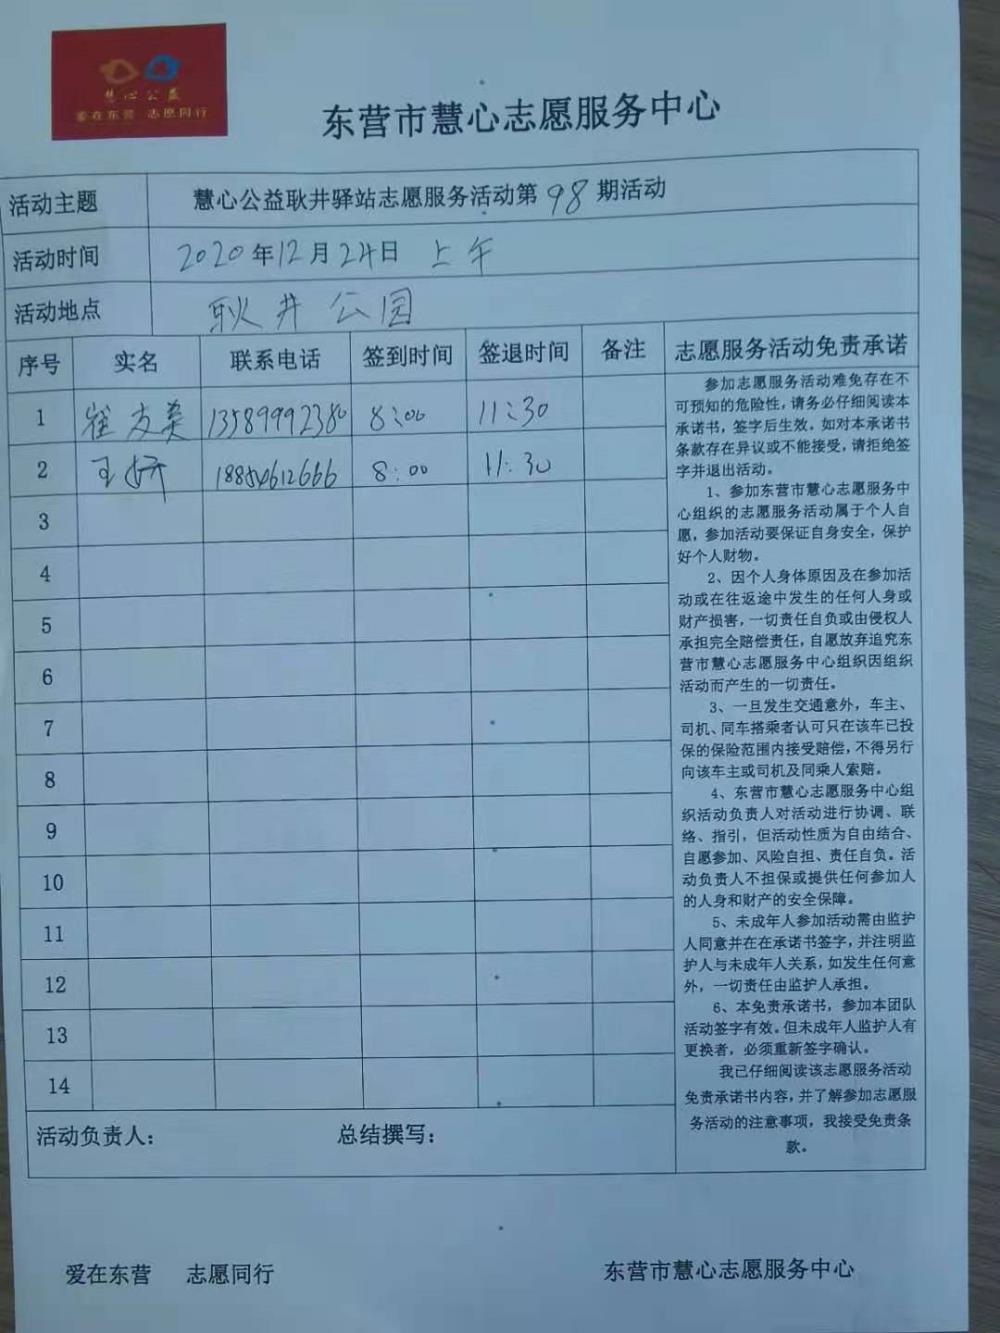 慧心公益
爱在东营 志愿同行
东营市慧心志愿服务中心
活动主题 慧心公益耿井驿站志愿服务活动第98期活动
活动时间 2020年12月24日 上午
活动地点 耿井公园
序号 实名 联系电话 签到时间 签退时间 备注
1 崔友美 13589992380 8:00 11:30
2 王妍 8:00 11:30
3
4
5
6
7
8
9
10
11
12
13
14
活动负责人： 总结撰写：
志愿服务活动免责承诺
参加志愿服务活动难免存在不
可预知的危险性，请务必仔细阅读本
承诺书，签字后生效。如对本承诺书
条款存在异议或不能接受，请拒绝签
字并退出活动。
1、参加东营市慧心志愿服务中
心组织的志愿服务活动属于个人自
愿，参加活动要保证自身安全，保护
好个人财物。
2、因个人身体原因及在参加活
动或在往返途中发生的任何人身或
财产损害，一切责任自负或由侵权人
承担完全赔偿责任，自愿放弃追究东
营市慧心志愿服务中心组织因组织
活动而产生的一切责任。
3、一旦发生交通意外，车主、
司机、同车搭乘者认可只在该车已投
保的保险范围内接受赔偿，不得另行
向该车主或司机及同乘人索赔。
4、东营市慧心志愿服务中心组
织活动负责人对活动进行协调、联
络、指引，但活动性质为自由结合、
自愿参加、风险自担、责任自负。活
动负责人不担保或提供任何参加人
的人身和财产的安全保障。
5、未成年人参加活动需由监护
人同意并在在承诺书签字，并注明监
护人与未成年人关系，如发生任何意
外，一切责任由监护人承担。
6、本免责承诺书，参加本团队
活动签字有效。但未成年人监护人有
更换者，必须重新签字确认。
我已仔细阅读该志愿服务活动
免责承诺书内容，并了解参加志愿服
务活动的注意事项，我接受免责条
款。
爱在东营 志愿同行 东营市慧心志愿服务中心